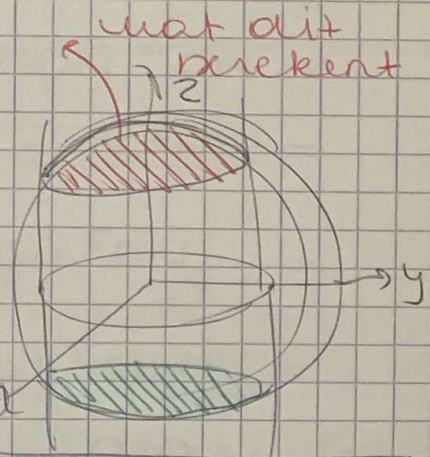 wat dit
berekent
z
y
x